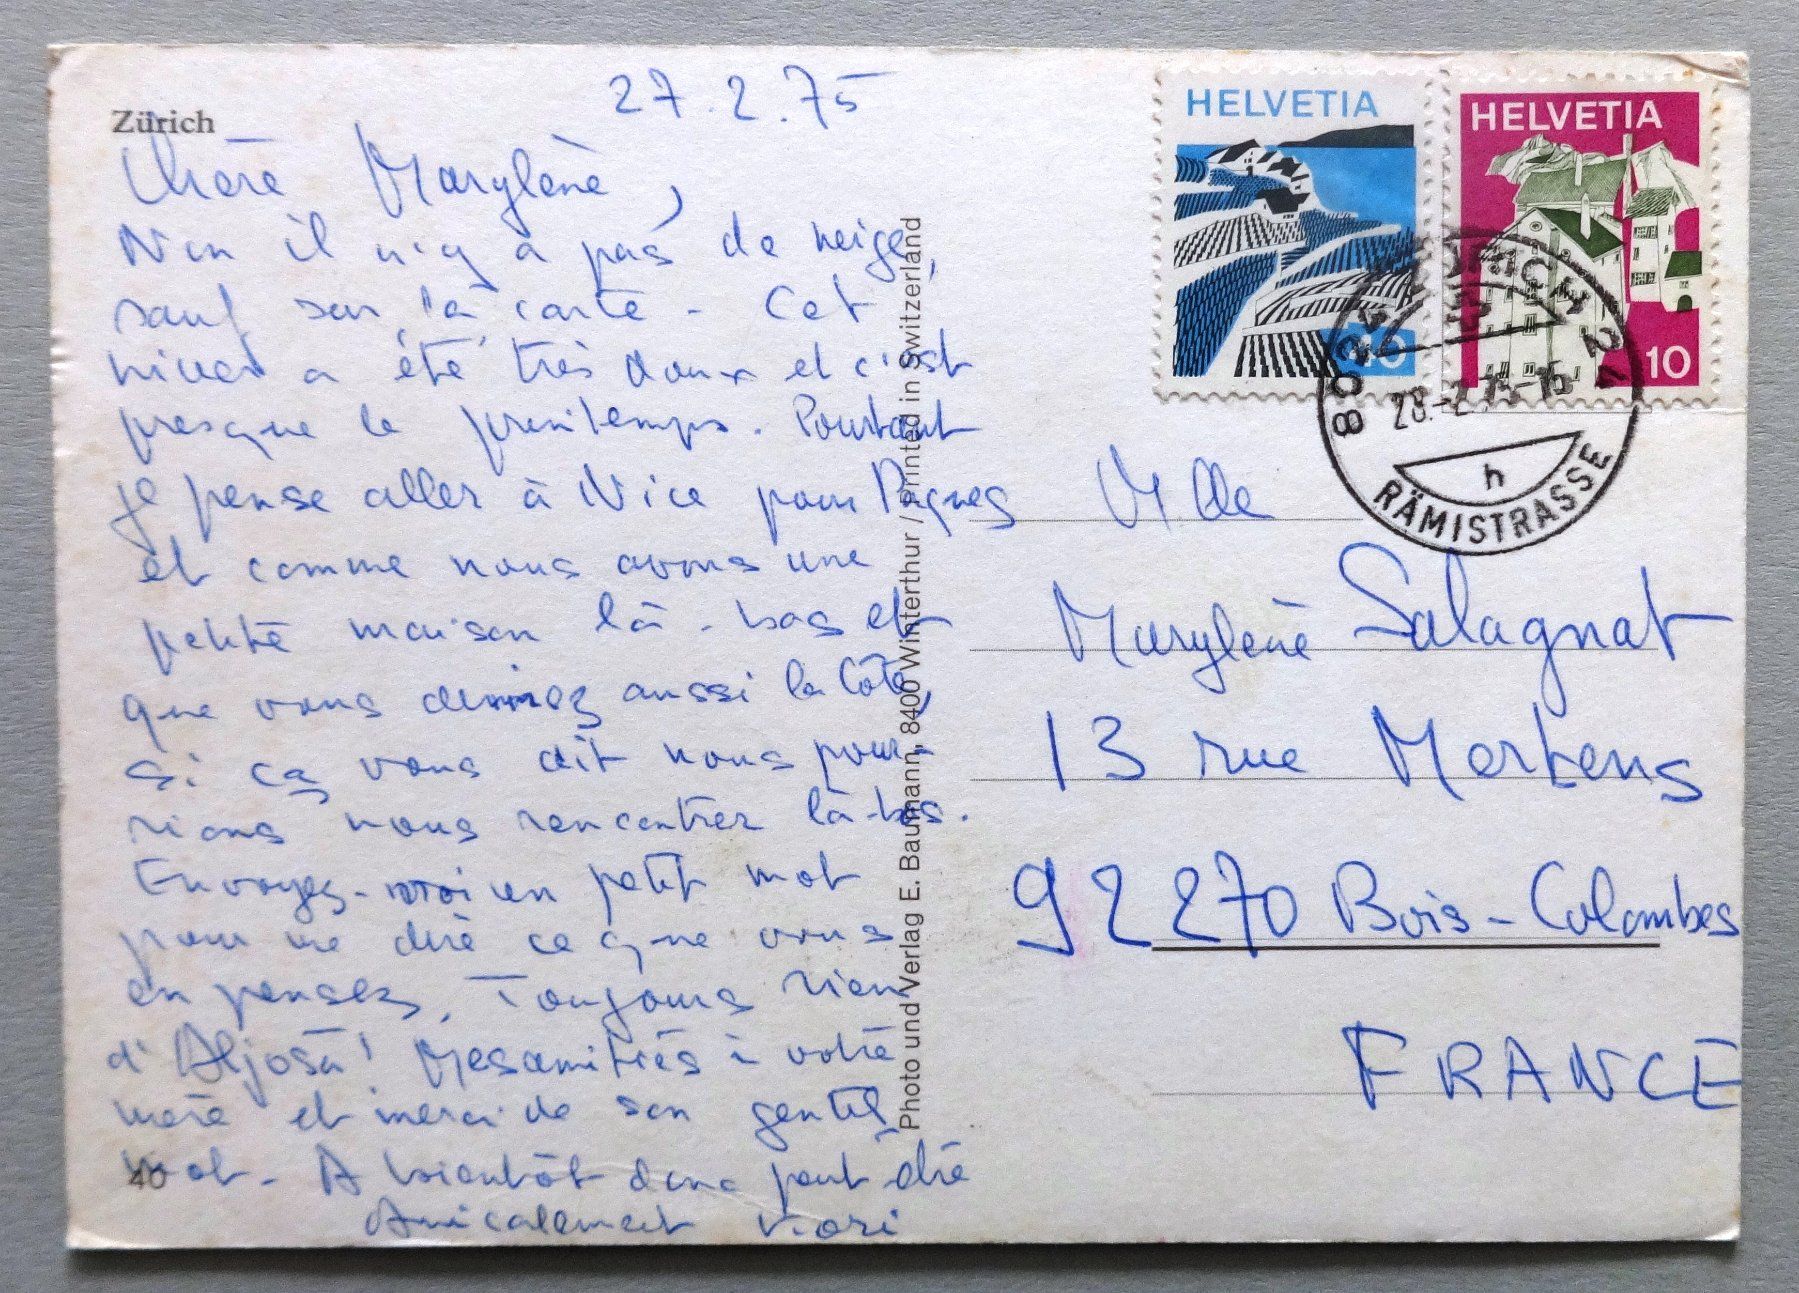 Zürich
27.2.75
Chère Marylène,
Non il n'y a pas de neige,
sauf sur la carte - Cet
hiver a été très doux et c'est
presque le printemps. Pourtant
je pense aller à Nice pour Pâques
et comme nous avons une
petite maison là-bas et
que vous aussi la Côte,
si ça vous dit nous pour-
rions nous rencontrer là-bas.
Envoyez-moi un petit mot
pour me dire ce que vous
en pensez. Toujours rien
d'Aljosa! Mes amitiés à votre
mère et merci de son gentil
mot - A bientôt donc peut-être
Amicalement
40
Photo und Verlag E. Baumann, 8400 Winterthur / Printed in Switzerland
HELVETIA
40
HELVETIA
10
8024 ZÜRICH 24
28.-2.75-16
h
RÄMISTRASSE
Mlle
Marylène Salagnat
13 rue Mertens
92270 Bois-Colombes
FRANCE